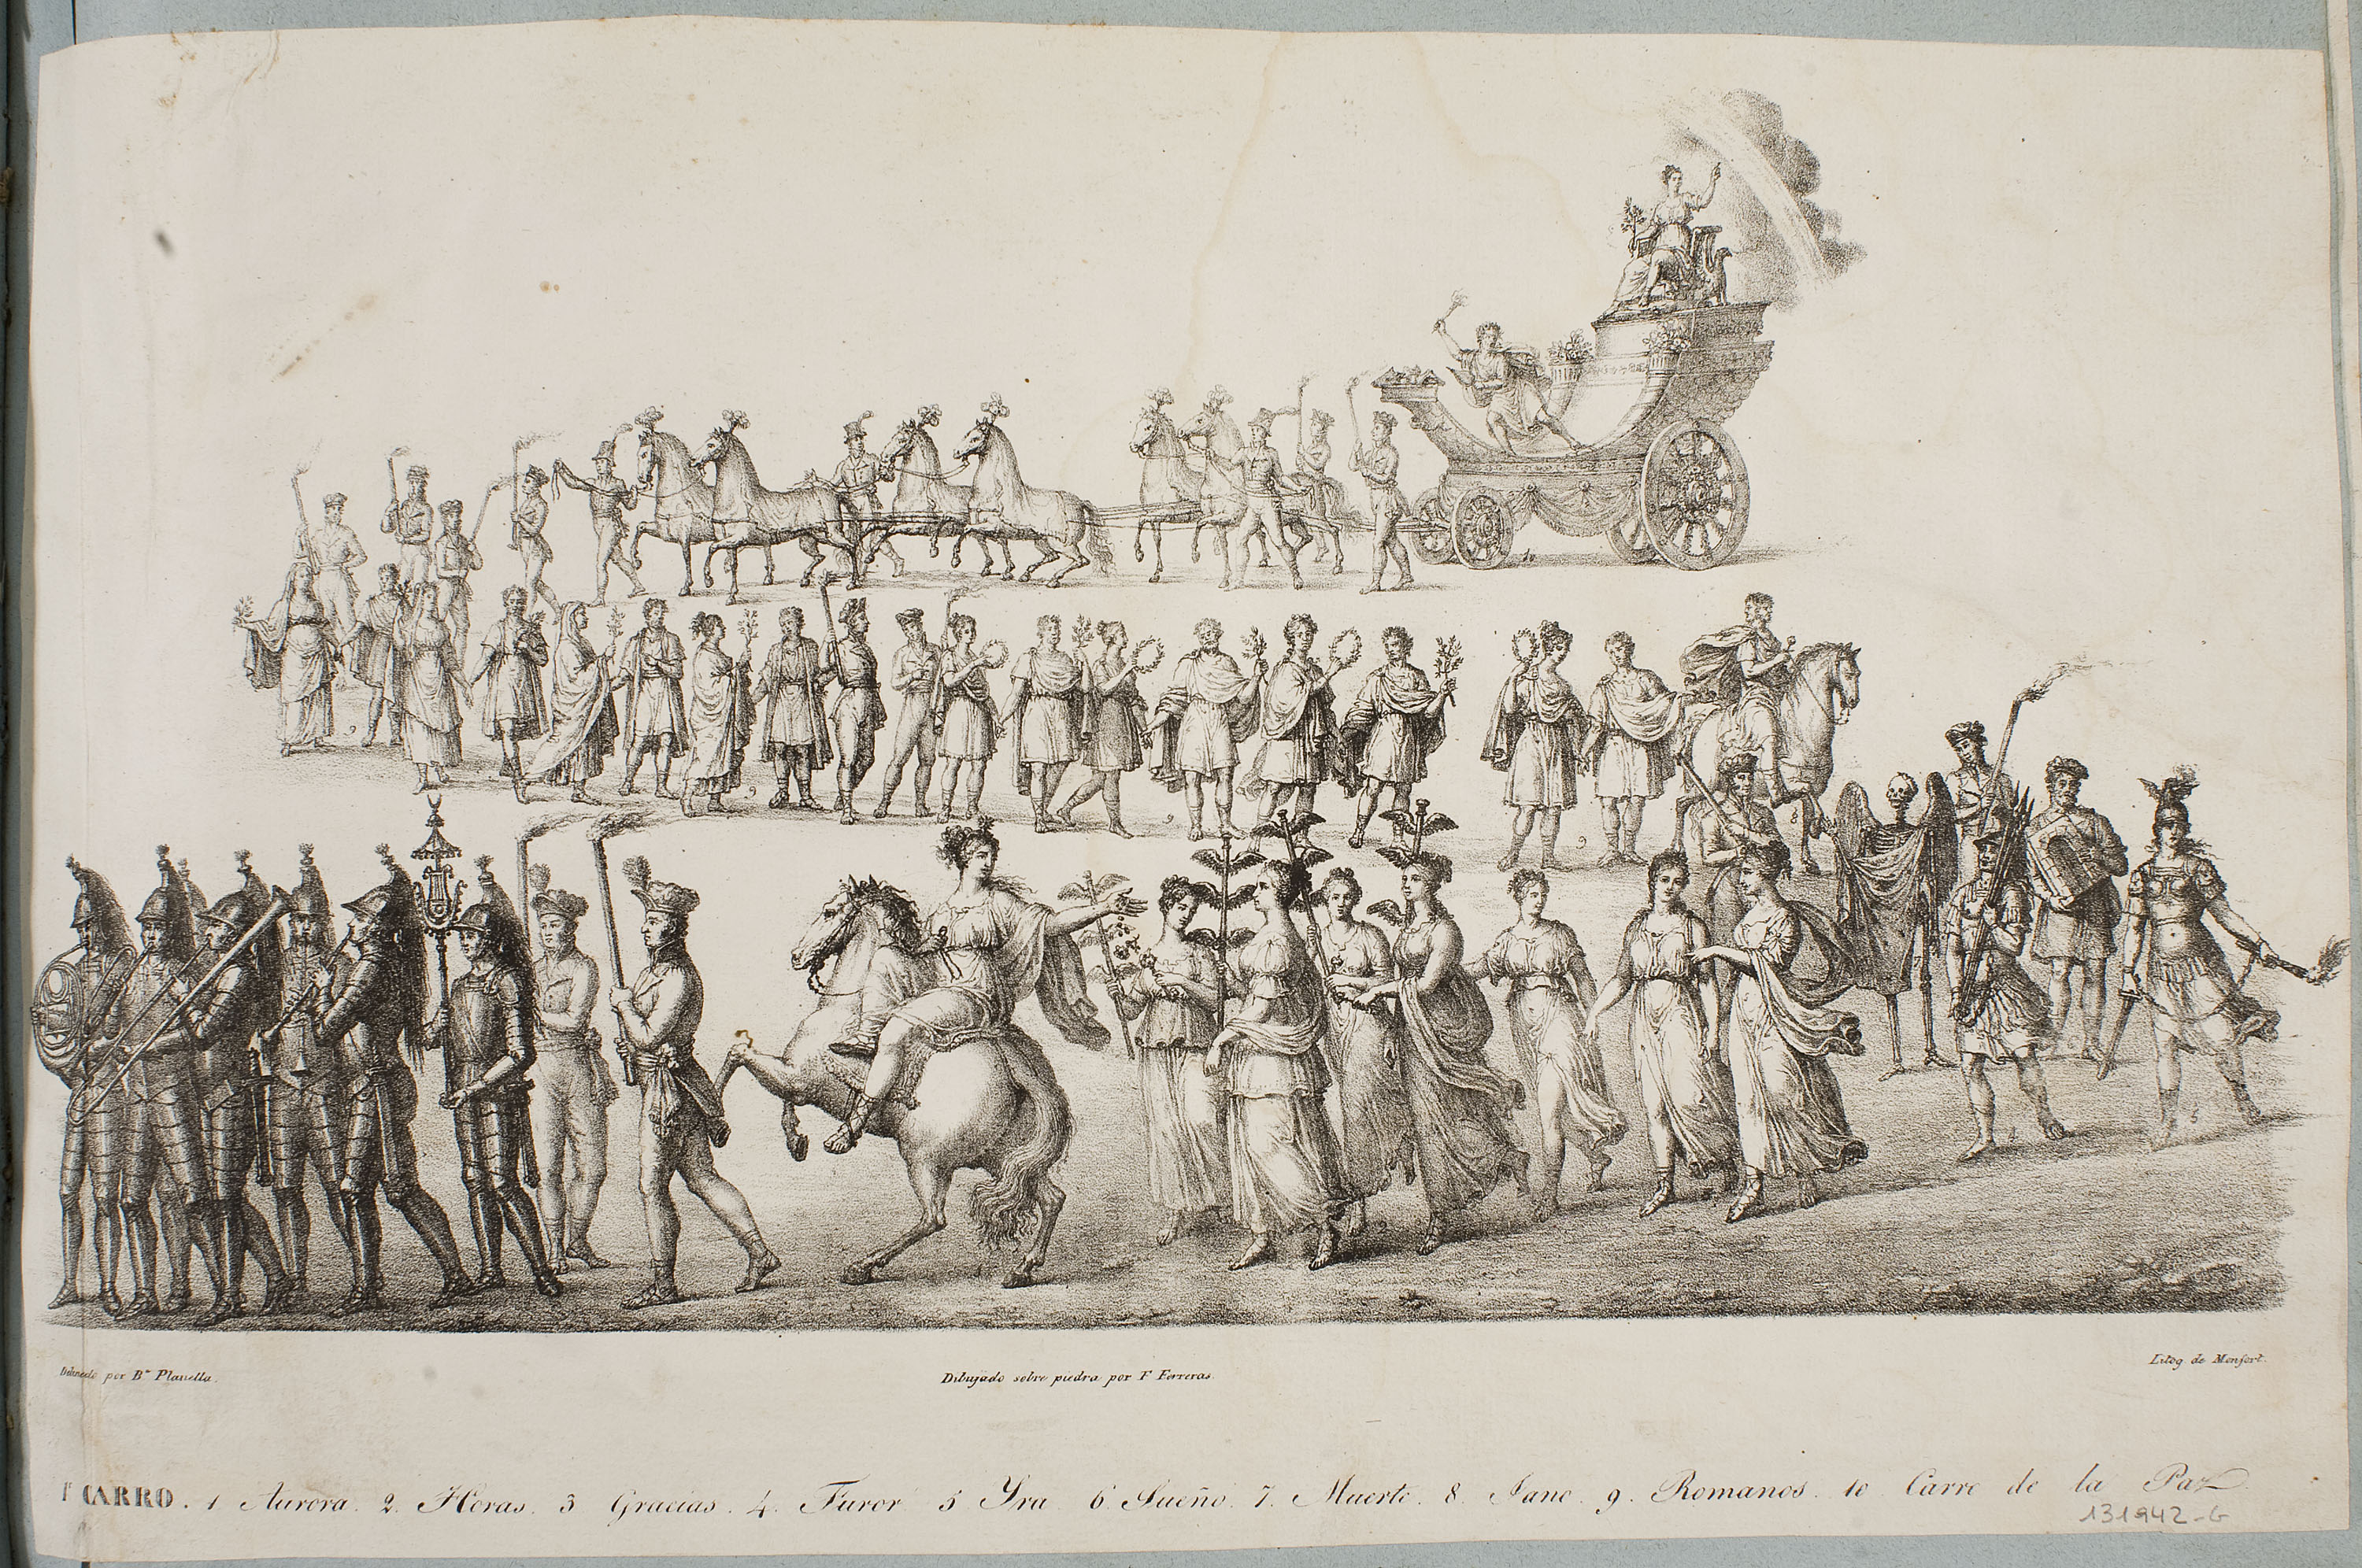 Delineado por Bⁿ Planella.
Dibujado sobre piedra por F Ferreras.
Litog. de Monfort.
1º CARRO. 1 Aurora. 2. Horas. 3 Gracias. 4. Furor 5 Yra 6 Sueño. 7. Muerte. 8 Jano. 9. Romanos. 10 Carro de la Paz.
131942-G